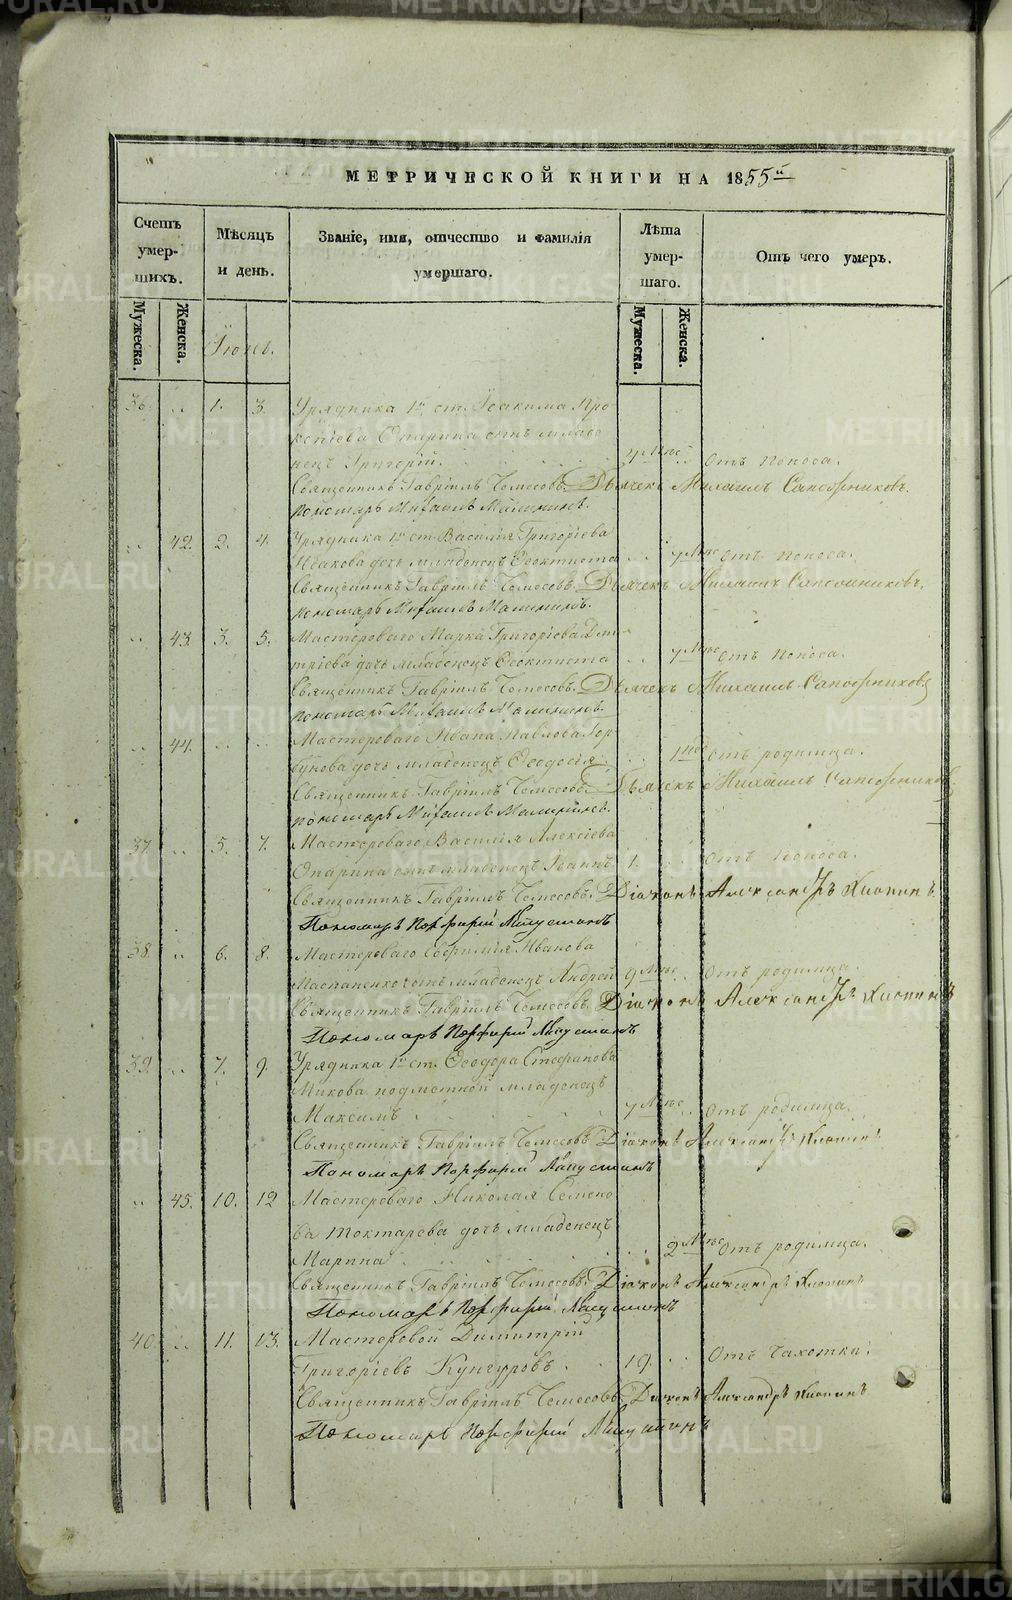 МЕТРИЧЕСКОЙ КНИГИ НА 1855й
Счетъ умершихъ.
Мѣсяцъ и день.
Званіе, имя, отчество и фамилія умершаго.
Лѣта умершаго.
Отъ чего умеръ.
Мужеска.
Женска.
Мужеска.
Женска.
Іюнь.
36. 1. 3. Урядника 1й ст. Іоакима Про
копіева Опарина сынъ младе
нецъ Григорій. 4 Мѣс. Отъ поноса.
Священникъ Гавріилъ Чемесовъ. Дьячекъ Михаилъ Сапожниковъ.
пономарь Михаилъ Малининъ.
42. 2. 4. Урядника 1й ст. Василія Григоріева
дочь младенецъ Ѳеоктиста 7 Мѣс. Отъ поноса.
Священникъ Гавріилъ Чемесовъ. Дьячекъ Михаилъ Сапожниковъ.
пономарь Михаилъ Малининъ.
43. 3. 5. Мастероваго Марка Григоріева Дми
тріева дочь младенецъ Ѳеоктиста 7 Мѣс. Отъ поноса.
Священникъ Гавріилъ Чемесовъ. Дьячекъ Михаилъ Сапожниковъ
пономарь Михаилъ Малининъ.
44. Мастероваго Ивана Павлова Гор
бунова дочь младенецъ Ѳеодосія 1 нед. Отъ родимца.
Священникъ Гавріилъ Чемесовъ. Дьячекъ Михаилъ Сапожниковъ
пономарь Михаилъ Малининъ.
37. 5. 7. Мастероваго Василія Алексіева
Опарина сынъ младенецъ Іоаннъ 1. Отъ поноса.
Священникъ Гавріилъ Чемесовъ. Діаконъ Александръ Хионинъ
Пономарь Порфирій
38. 6. 8. Мастероваго Иванова
сынъ младенецъ Андрей 9 Мѣс. Отъ родимца.
Священникъ Гавріилъ Чемесовъ. Діаконъ Александръ Хионинъ
Пономарь Порфирій
39. 7. 9. Урядника 1й ст. Ѳеодора Стефанова
младенецъ
Максимъ 4 Мѣс. Отъ родимца.
Священникъ Гавріилъ Чемесовъ. Діаконъ Александръ Хионинъ
Пономарь Порфирій
45. 10. 12 Мастероваго Николая Семено
ва Токтарева дочь младенецъ
Марина 2 Мѣс. Отъ родимца.
Священникъ Гавріилъ Чемесовъ. Діаконъ Александръ Хионинъ
Пономарь Порфирій
40. 11. 13. Мастеровой Димитрій
Григоріевъ Кунгуровъ. 19. Отъ чахотки.
Священникъ Гавріилъ Чемесовъ. Діаконъ Александръ Хионинъ
Пономарь Порфирій
METRIKI.GASO-URAL.RU